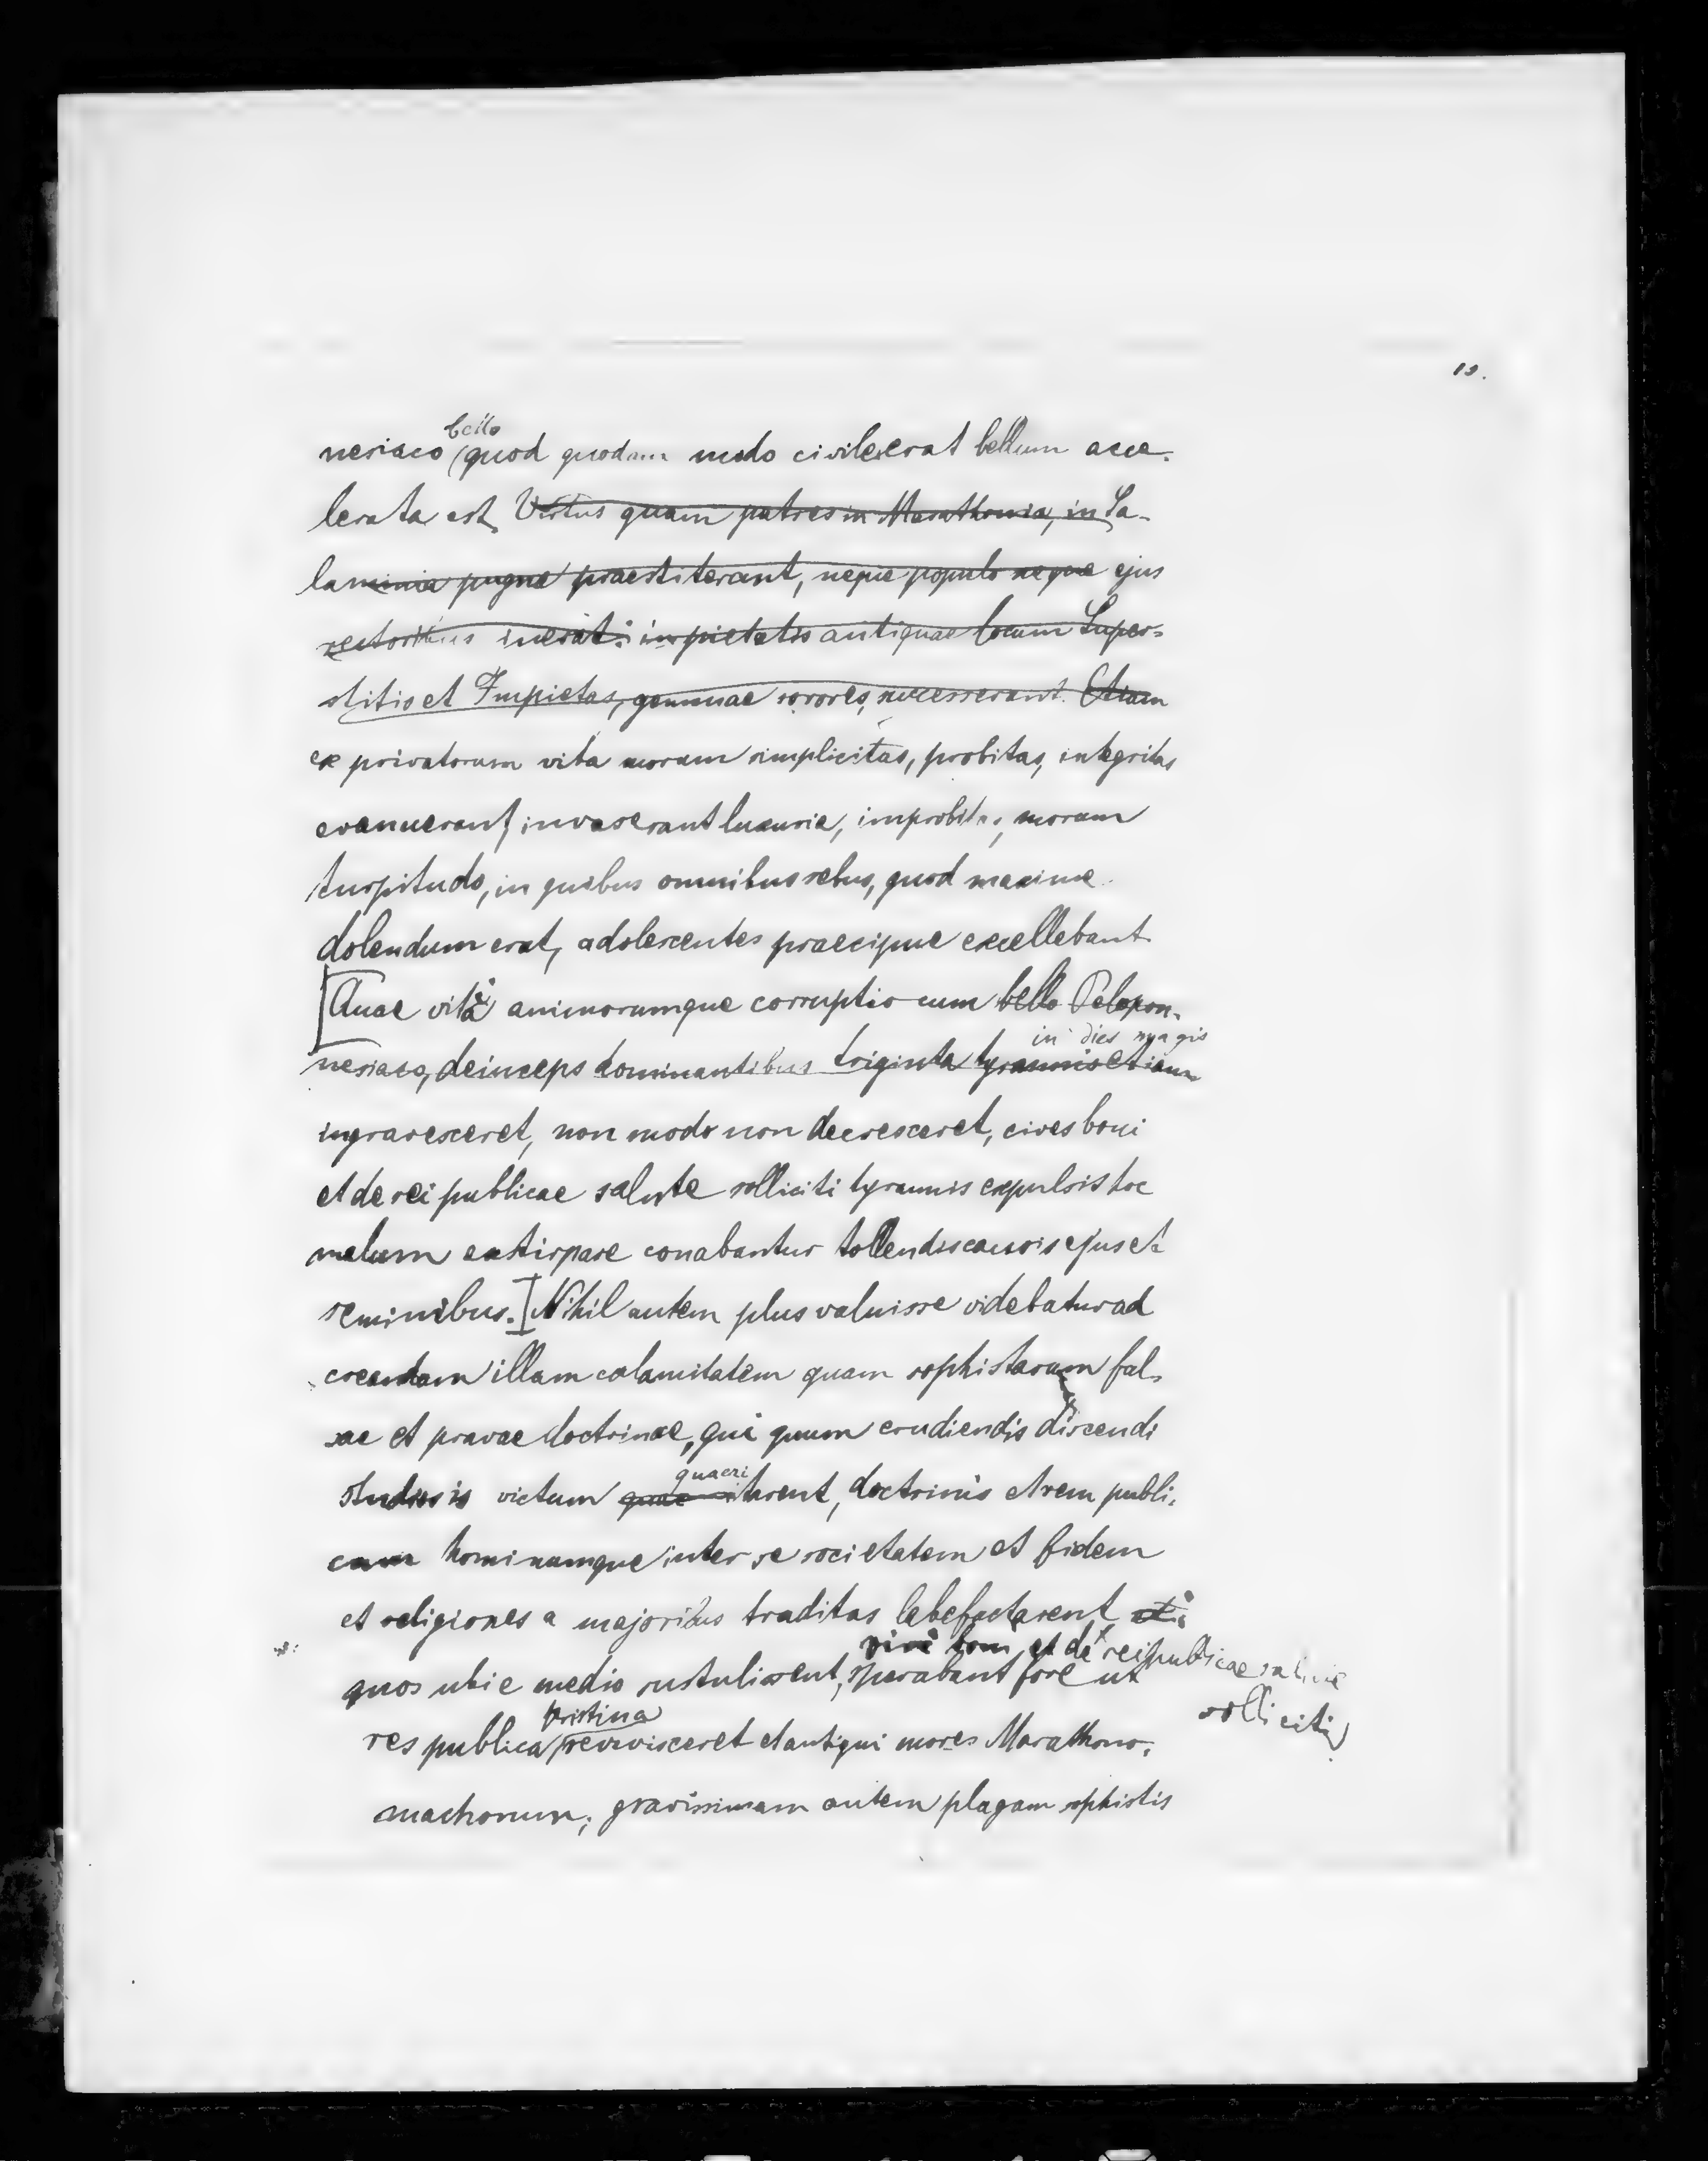 12.
bello
nesiaco (quod quodam modo civile erat bellum acce-
lerata est. Virtus quam patres in Marathonia, in Sa-
laminia pugna praestiterant, neque populo neque ejus
rectoribus inerat: in pietatis antiquae locum Super-
stitio et Impietas, geminae sorores, successerant. Etiam
ex privatorum vita morum simplicitas, probitas, integritas
evanuerant, invaserant luxuria, improbitas, morum
turpitudo, in quibus omnibus rebus, quod maxime
dolendum erat, adolescentes praecipue excellebant
[Quae vitae animorumque corruptio cum bello Pelopon-
in dies magis
nesiaco, deinceps dominantibus triginta tyrannis etiam
ingravesceret, non modo non decresceret, cives boni
et de rei publicae salute solliciti tyrannis expulsis hoc
malum exstirpare conabantur tollendis causis ejus et
seminibus.] Nihil autem plus valuisse videbatur ad
creandam illam calamitatem quam sophistarum fal-
sae et pravae doctrinae, qui quum erudiendis discendi
quaeri
studiosis victum tarent, doctrinis et rem publi-
cam hominumque inter se societatem et fidem
et religiones a majoribus traditas labefactarent,
viri boni et de rei publicae salute
quos ubi e medio sustulissent, sperabant fore ut
solliciti
pristina
res publica revivisceret et antiqui mores Marathono-
machorum; gravissimam autem plagam sophistis